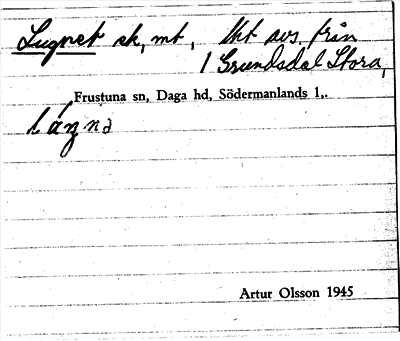 Lugnet sk, mt, Utt avs. från
1 Grundsdal Stora,
Frustuna sn, Daga hd, Södermanlands l,.
Artur Olsson 1945